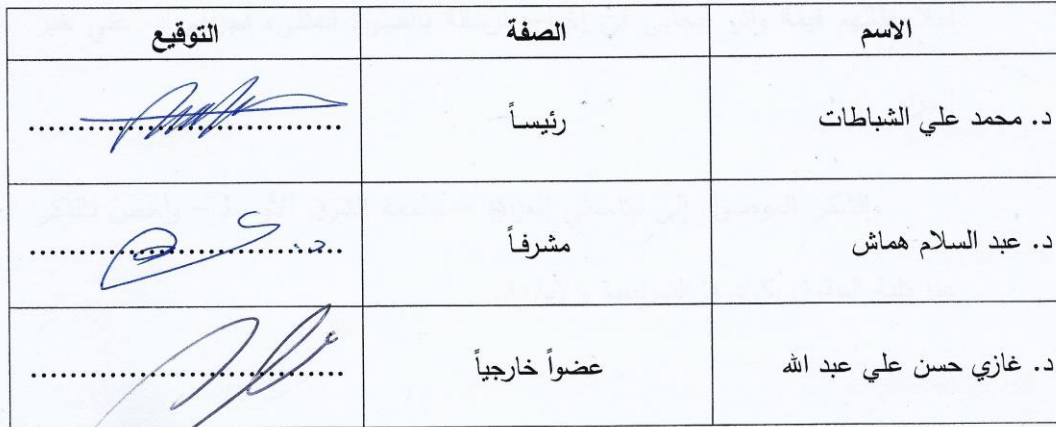 الاسم الصفة التوقيع
د. محمد علي الشباطات رئيساً ..............................
د. عبد السلام هماش مشرفاً ..............................
د. غازي حسن علي عبد الله عضواً خارجياً ..............................